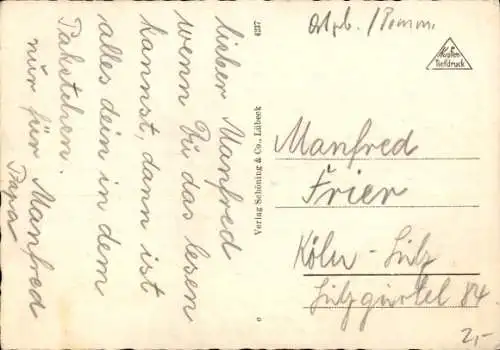 lieber Manfred
wenn Du das lesen
kannst, dann ist
alles dein in dem
Paketchen.
nur für Manfred
Papa
4237
Verlag Schöning & Co., Lübeck
Ostpb. / Pomm.
Kupfer
Tiefdruck
Manfred
Frier
Köln - Sülz
Sülzgürtel 84
2,-